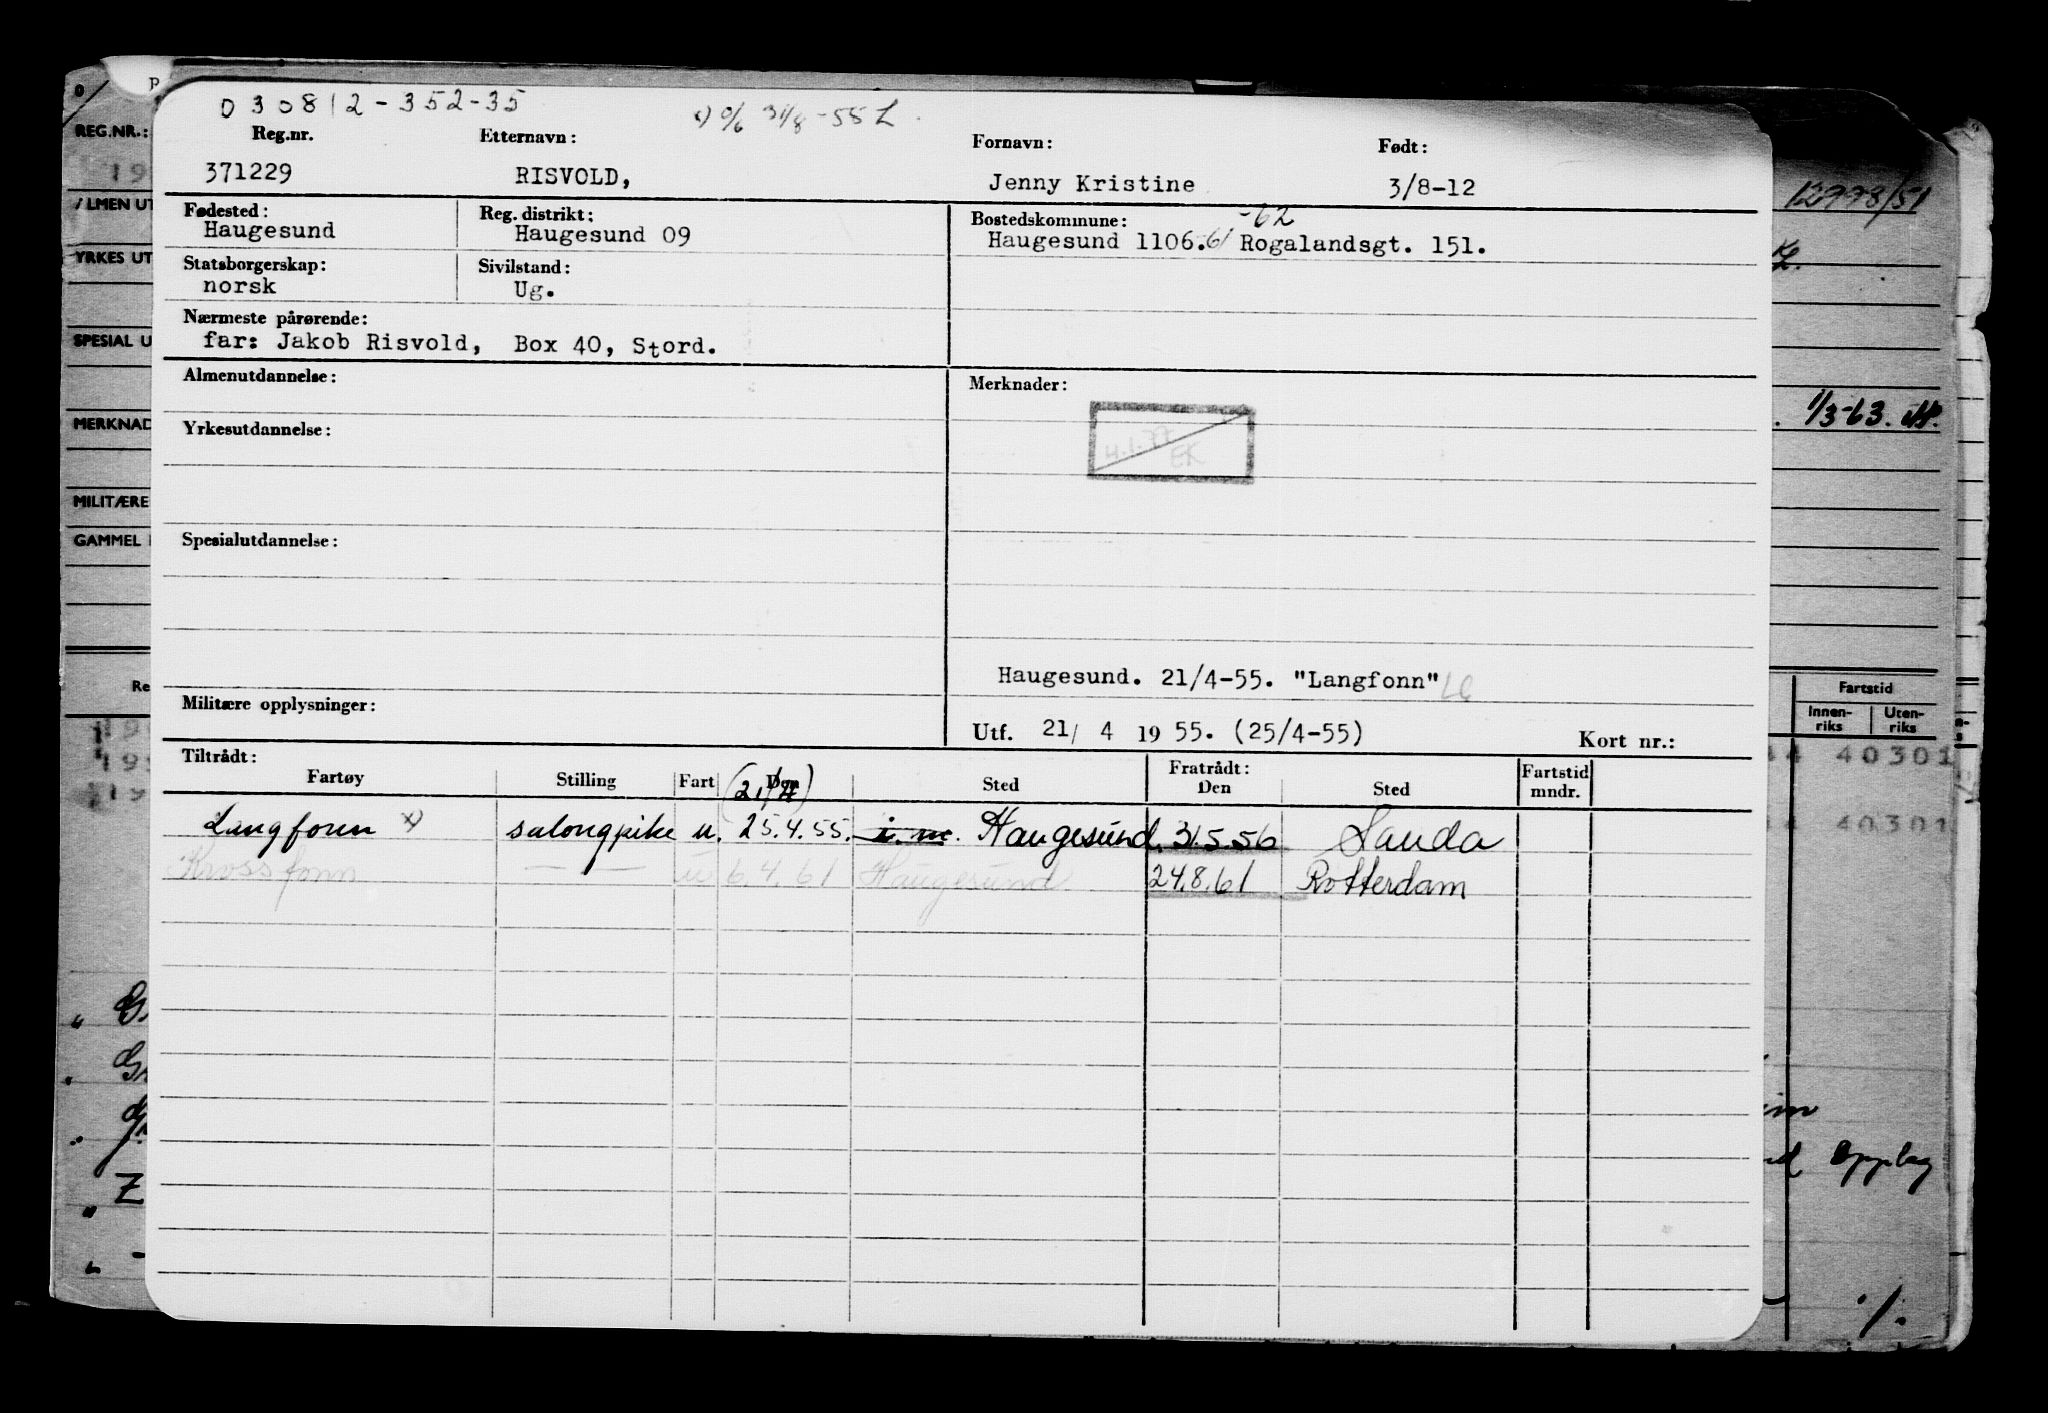 030812-352-35
o/b 31/8-55 L
Reg.nr. Etternavn: Fornavn: Født:
371229 RISVOLD, Jenny Kristine 3/8-12
Fødested: Reg. distrikt: Bostedskommune: -62
Haugesund Haugesund 09 Haugesund 1106. 61 Rogalandsgt. 151.
Statsborgerskap: Sivilstand:
norsk Ug.
Nærmeste pårørende:
far: Jakob Risvold, Box 40, Stord.
Almenutdannelse: Merknader:
Yrkesutdannelse:
EK
Spesialutdannelse:
Haugesund. 21/4-55. "Langfonn"
Militære opplysninger:
Utf. 21/ 4 19 55. (25/4-55) Kort nr.:
Tiltrådt: Fratrådt:
Fartøy Stilling Fart Den (21/4) Sted Den Sted Fartstid mndr.
Langfonn x) salongpike u. 25.4.55. i. m. Haugesund. 31.5.56 Sauda
Krossfonn — — u 6.4.61 Haugesund 24.8.61 Rotterdam
REG.NR.:
12998/51
YRKES UT
SPESIAL U
MERKNAD
1/3-63.
MILITÆRE
GAMMEL
Fartstid
Innen-riks Uten-riks
40301
40301
Opplag